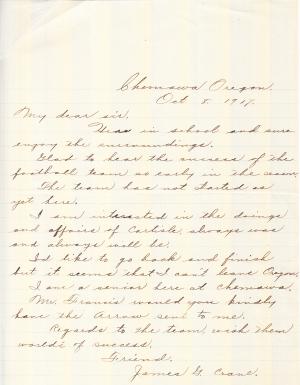 Chemawa Oregon.
Oct 8, 1917.
My dear sir.
Am in school and sure
enjoy the surroundings.
Glad to hear the success of the
football team so early in the season.
The team has not started as
yet here.
I am interested in the doings
and affairs of Carlisle, always was
and always will be.
I'd like to go back and finish
but it seems that I can't leave Oregon.
I am a senior here at Chemawa.
Mr. Francis would you kindly
have the Arrow sent to me.
Regards to the team, wish them
worlds of success.
Friend.
James G. Crane.